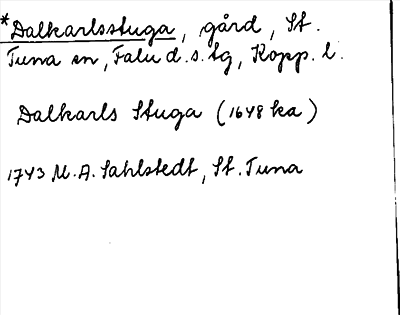 *Dalkarlsstuga, gård, St.
Tuna sn, Falu d.s.tg, Kopp. l.
Dalkarls Stuga (1648 ka)
1743 M.A. Sahlstedt, St. Tuna